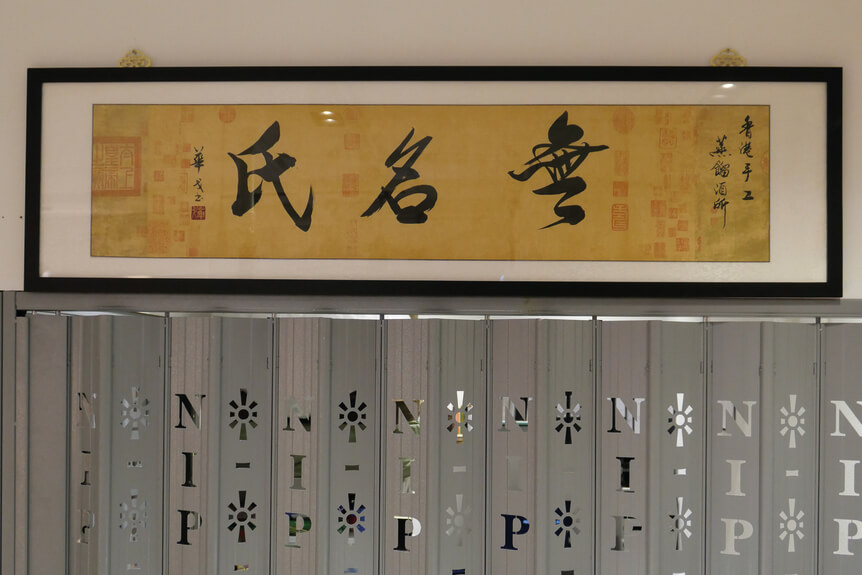 香港手工
蒸餾酒所
無名氏
華戈書
NIP
NIP
NIP
NIP
NIP
NIP
NIP
NIP